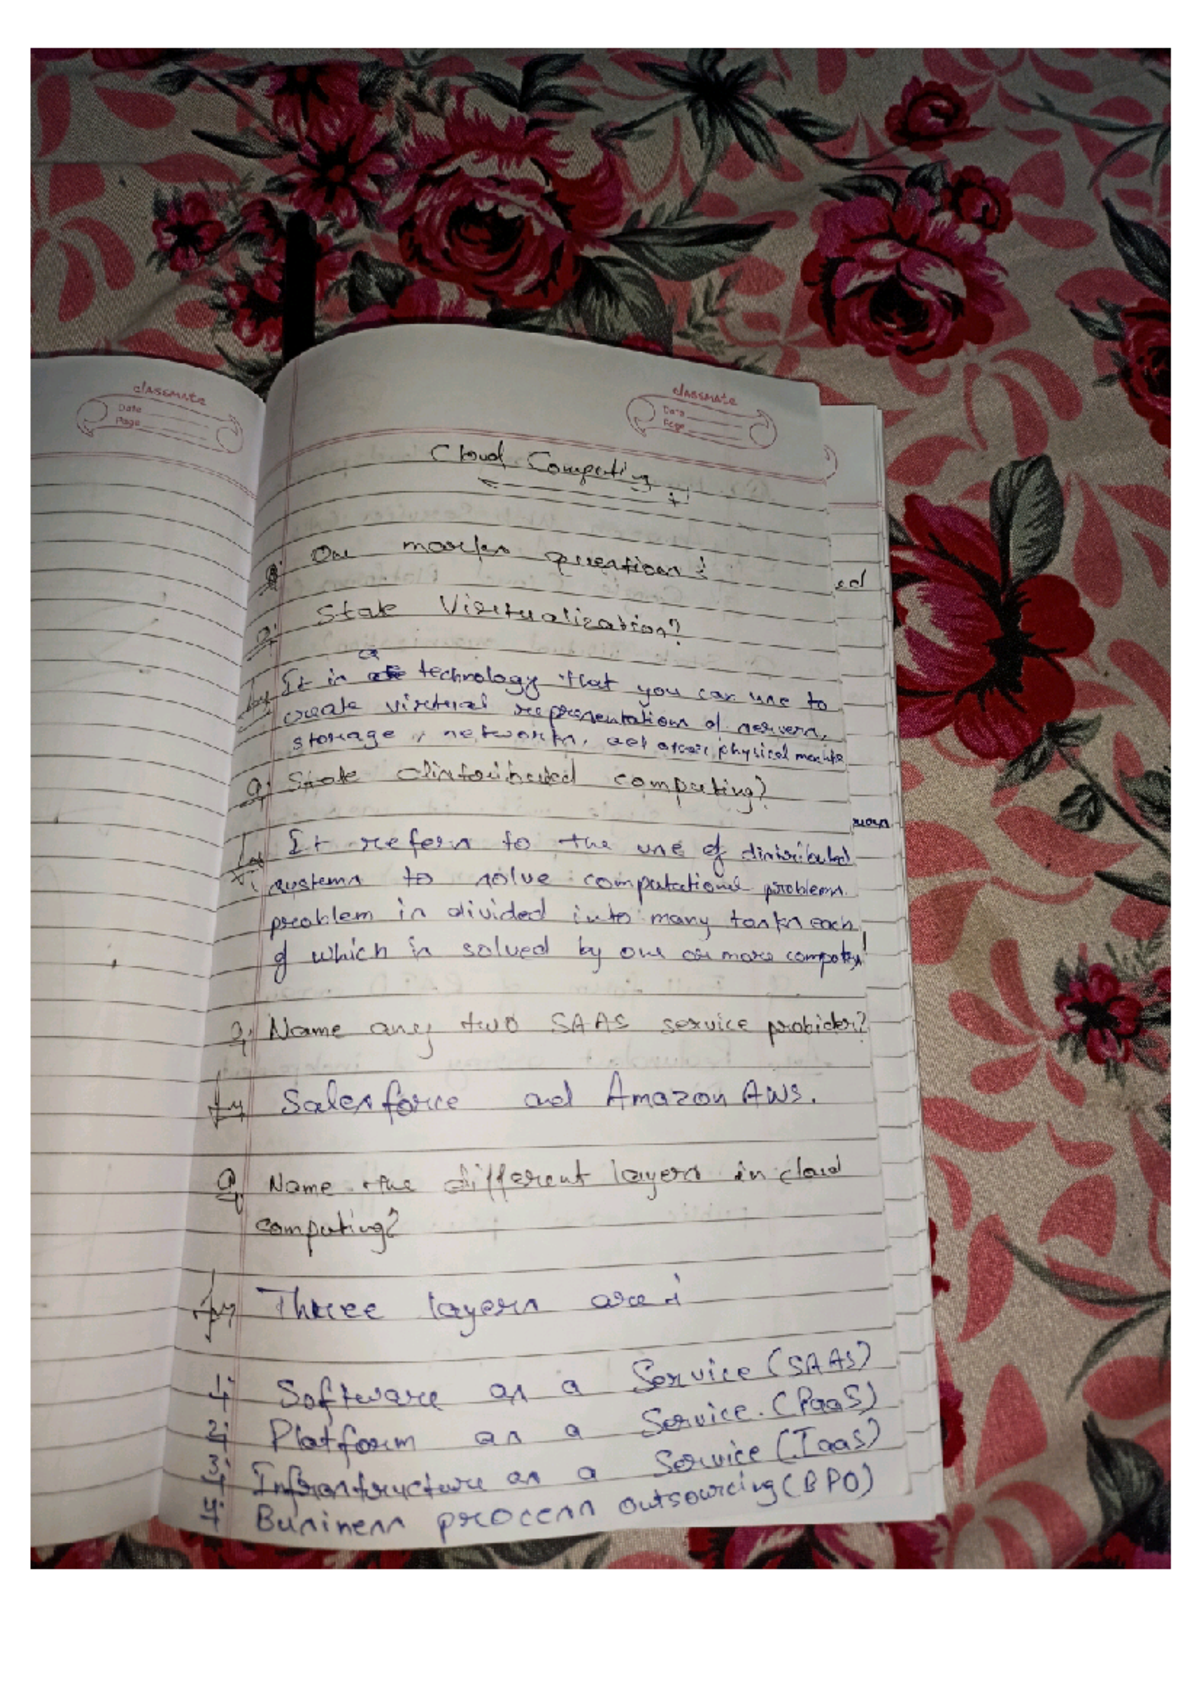 classmate
Date
Page
classmate
Date
Page
Cloud Computing
One marks questions:
Q: State Virtualization?
Ans It is a technology that you can use to
create virtual representations of servers,
storage, networks, and other physical machine
Q: State distributed computing?
Ans It refers to the use of distributed
systems to solve computational problems.
problem is divided into many tasks each
of which is solved by one or more computer
Q, Name any two SAAS service probider?
Ans Salesforce and Amazon AWS.
Q, Name the different layers in cloud
computing?
Ans Three layers are:
1: Software as a Service (SAAS)
2: Platform as a Service. (PaaS)
3: Infrastructure as a Service (IaaS)
4: Business process outsourcing (BPO)